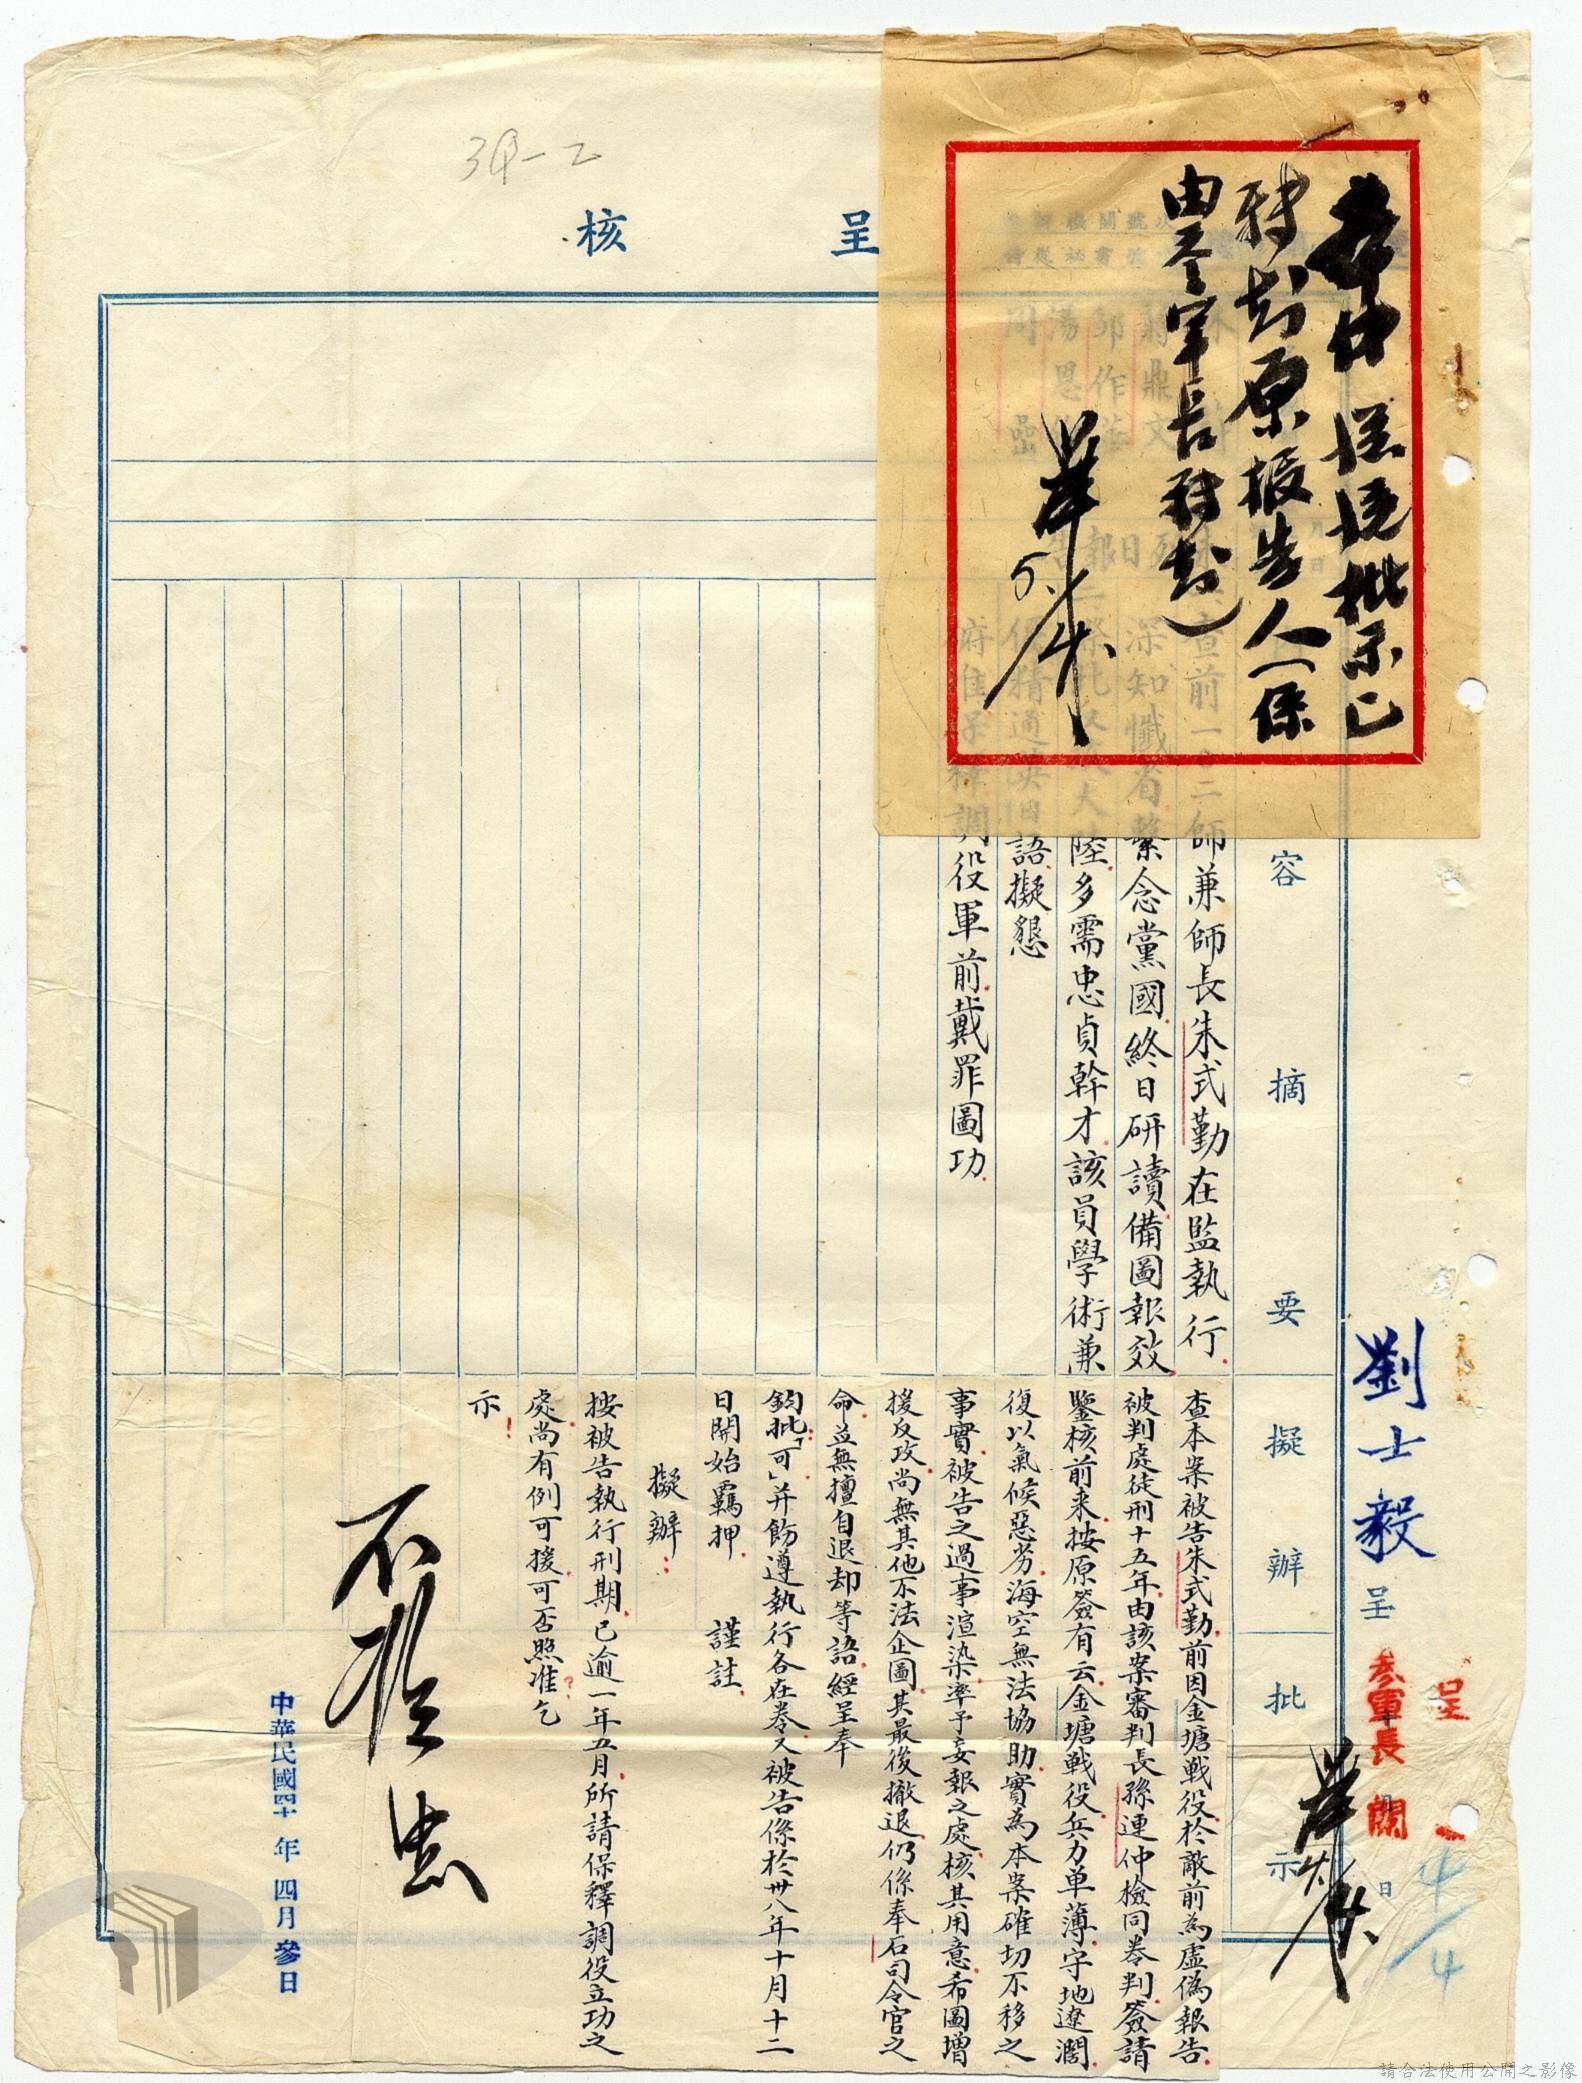 39-2
呈核
奉
批示已
轉知原報告人(係
由參軍長轉知)
蔣鼎文
邹作華
湯恩
同
報告
查前一〇二師兼師長朱式勤在監執行
深知懺省繫念黨國終日研讀備圖報效
大陸多需忠貞幹才該員學術兼
精通英日語擬懇
府准保釋調役軍前戴罪圖功
容摘要
擬辦
批示
查本案被告朱式勤前因金塘戰役於敵前為虛偽報告
被判處徒刑十五年由該案審判長孫連仲檢同卷判簽請
鑒核前來按原簽有云金塘戰役兵力单薄守地遼濶
復以氣候惡劣海空無法協助實為本案確切不移之
事實被告之過事渲染率予妄報之處核其用意希圖增
援反攻尚無其他不法企圖其最後撤退仍係奉石司令官之
命並無擅自退却等語經呈奉
鈞批「可」并飭遵執行各在卷又被告係於卅八年十月十二
日開始羈押 謹註
擬辦：
按被告執行刑期已逾一年五月所請保釋調役立功之
處尚有例可援可否照准乞
示
不准
中華民國四十年四月參日
劉士毅呈
呈
參軍長
月日
4/4
請合法使用公開之影像